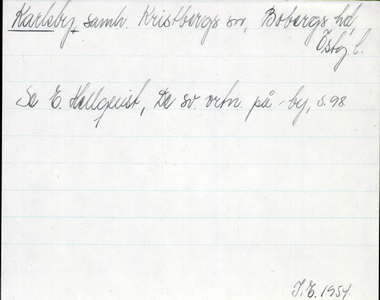 Karlsby, samh. Kristbergs sn, Bobergs hd,
Östg. l.
Se E. Hellquist, De sv. ortn. på -by, s. 98
J. E. 1954.